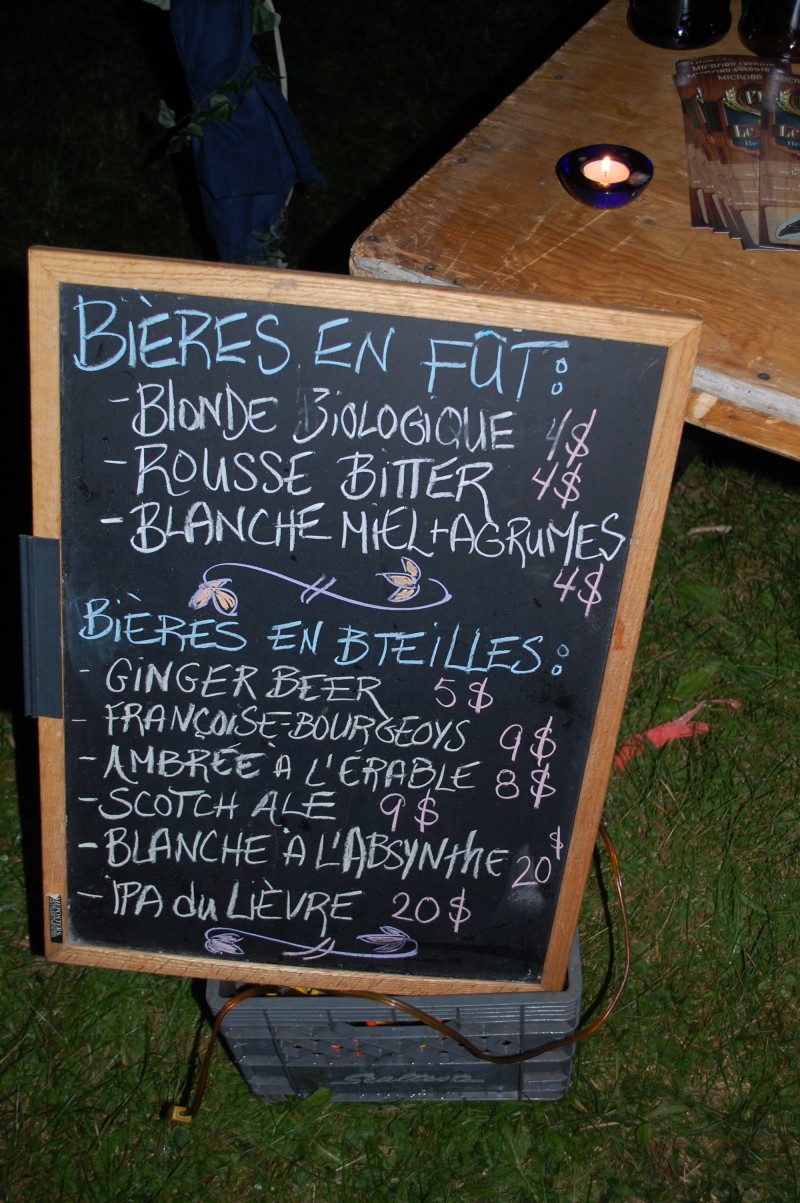 MICROBRASSERIE
MICROBR
Le
Le
BIÈRES EN FÛT:
- BLONDE BIOLOGIQUE 4$
- ROUSSE BITTER 4$
- BLANCHE MIEL+AGRUMES
4$
BIÈRES EN BTEILLES:
- GINGER BEER 5$
- FRANÇOISE-BOURGEOYS 9$
- AMBRÉE À L'ÉRABLE 8$
- SCOTCH ALE 9$
- BLANCHE À L'ABSYNTHE 20$
- IPA du LIÈVRE 20$